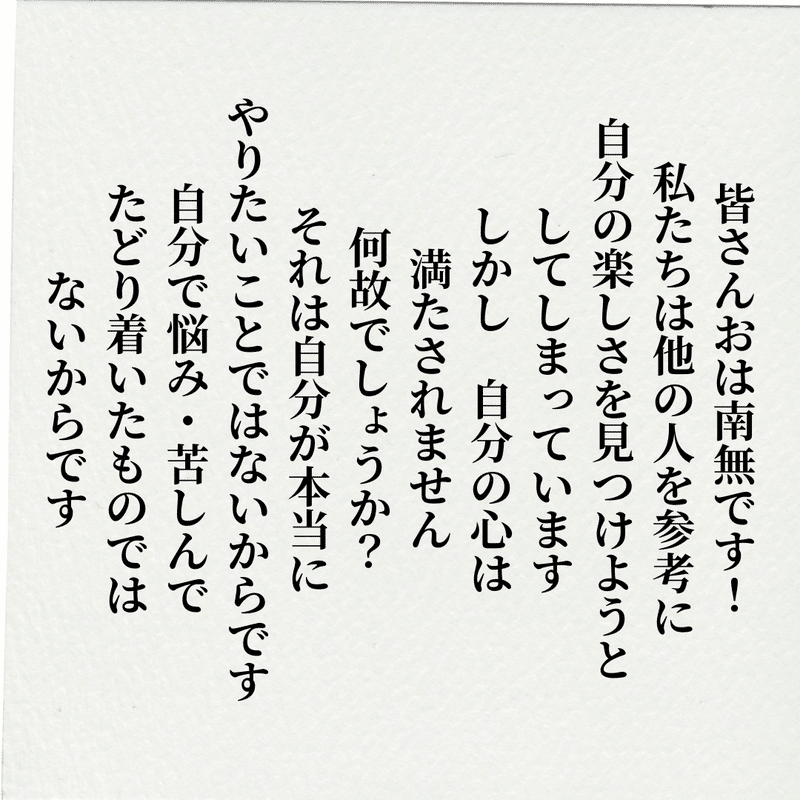 皆さんおは南無です！
私たちは他の人を参考に
自分の楽しさを見つけようと
してしまっています
しかし　自分の心は
満たされません
何故でしょうか？
それは自分が本当に
やりたいことではないからです
自分で悩み・苦しんで
たどり着いたものでは
ないからです